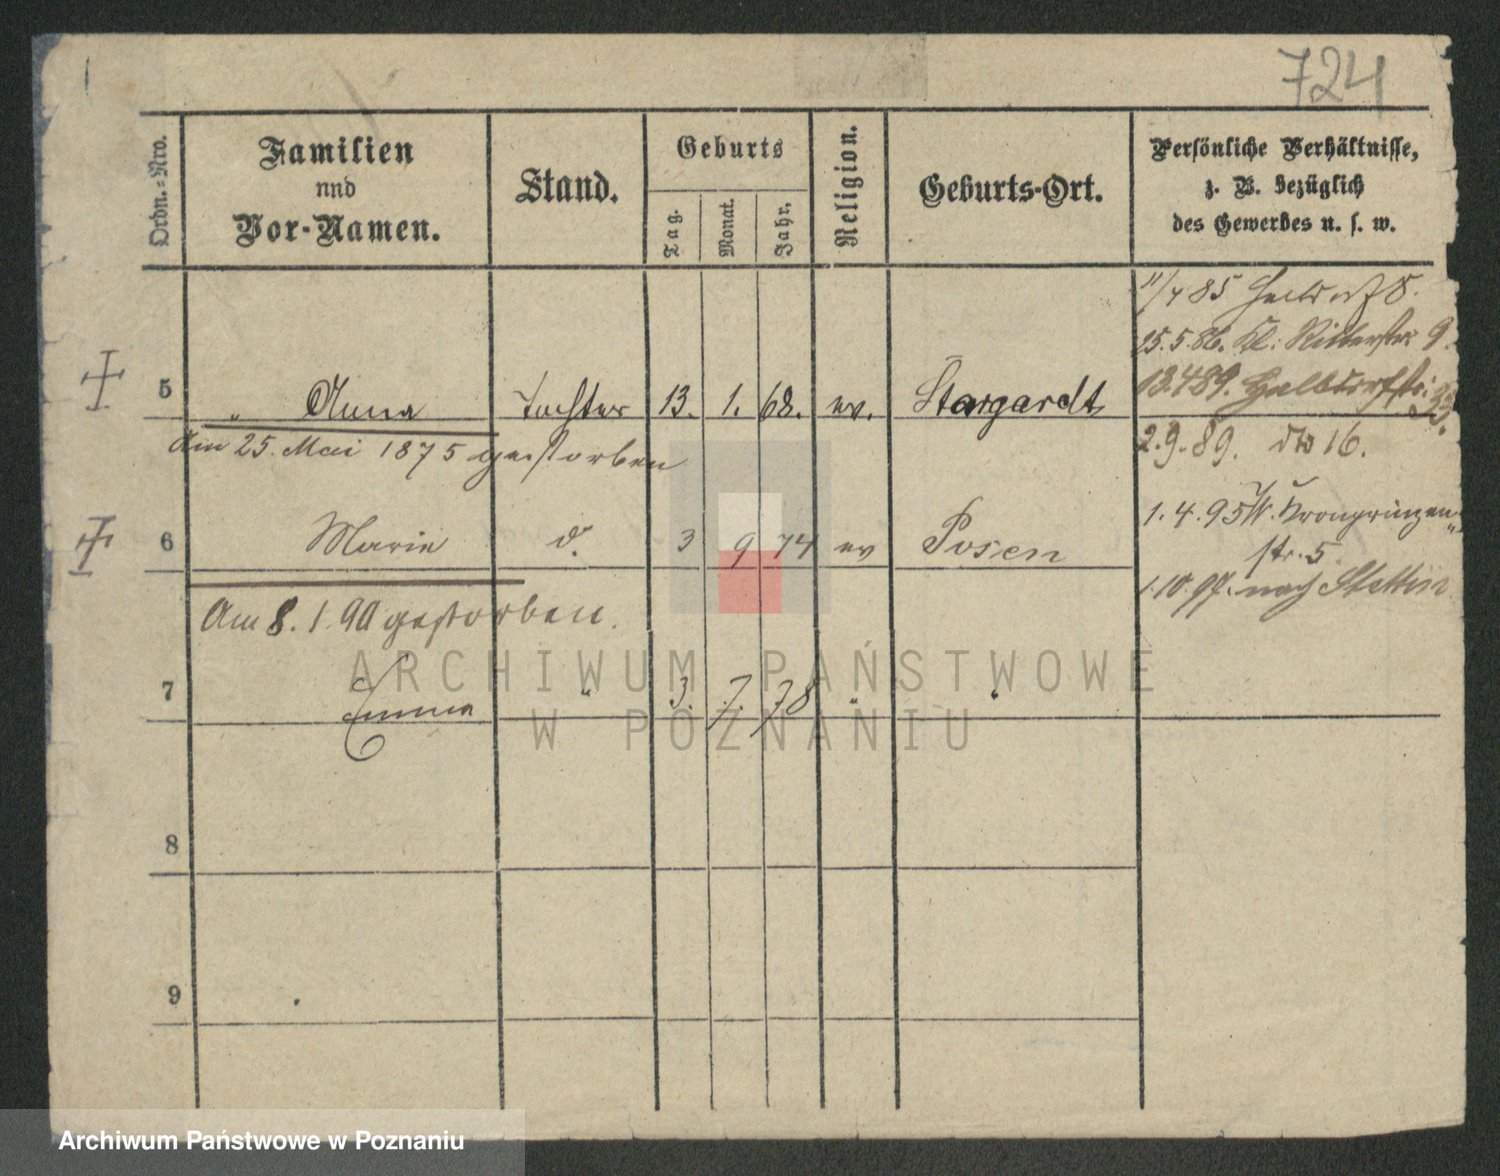 724
Ordn.=Nro.
Familien
und
Vor-Namen.
Stand.
Geburts
Tag.
Monat.
Jahr.
Religion.
Geburts-Ort.
Persönliche Verhältnisse,
z. B. bezüglich
des Gewerbes u. s. w.
11/4 85
25.5.86. Kl: Ritterstr. 9.
13.4 89. Halbdorfstr. 33.
5 " Anna Tochter 13. 1. 68. ev. Stargardt
Am 25. Mai 1875 gestorben
2.9.89. dto 16.
1.4.95 Kronprinzen
str. 5.
6 Marie d. 3 9 74 ev Posen
1.10.97. nach Stettin
Am 8.1.90 gestorben.
7 Emma " 3. 7. 78 " "
8
9
ARCHIWUM PAŃSTWOWE
W POZNANIU
Archiwum Państwowe w Poznaniu